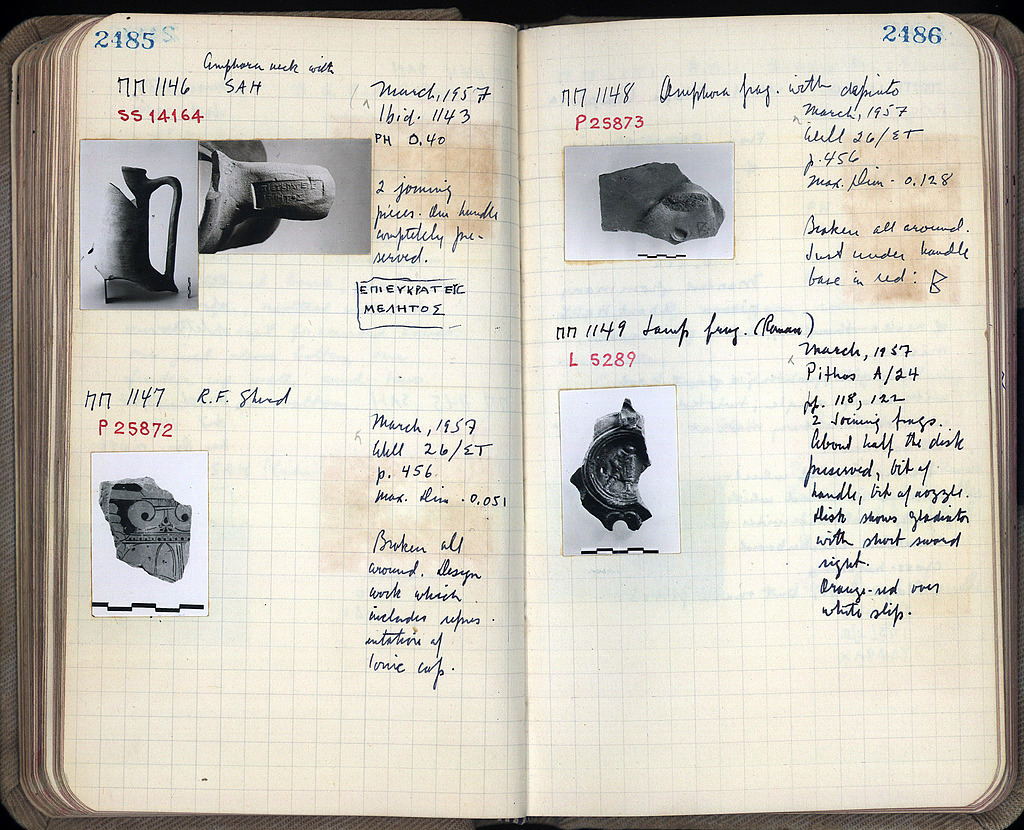 2485
Amphora neck with
ΠΠ 1146 SAH
SS 14164
March, 1957
Ibid. 1143
PH 0.40
2 joining
pieces. One handle
completely pre-
served.
ΕΠΙΕΥΚΡΑΤΕΥΣ
ΜΕΛΗΤΟΣ
ΠΠ 1147 R.F. Sherd
P 25872
March, 1957
Well 26/ΕΤ
p. 456
Max. Dim. 0.051
Broken all
around. Design
work which
includes repres-
entation of
Ionic cap.
2486
ΠΠ 1148 Amphora frag. with dipinto
P 25873
March, 1957
Well 26/ΕΤ
p. 456
Max. Dim. 0.128
Broken all around.
Just under handle
base in red: B
ΠΠ 1149 Lamp frag. (Roman)
L 5289
March, 1957
Pithos A/24
pp. 118, 122
2 Joining frags.
About half the disk
preserved, bit of
handle, bit of nozzle.
Disk shows gladiator
with short sword
right.
Orange-red over
white slip.